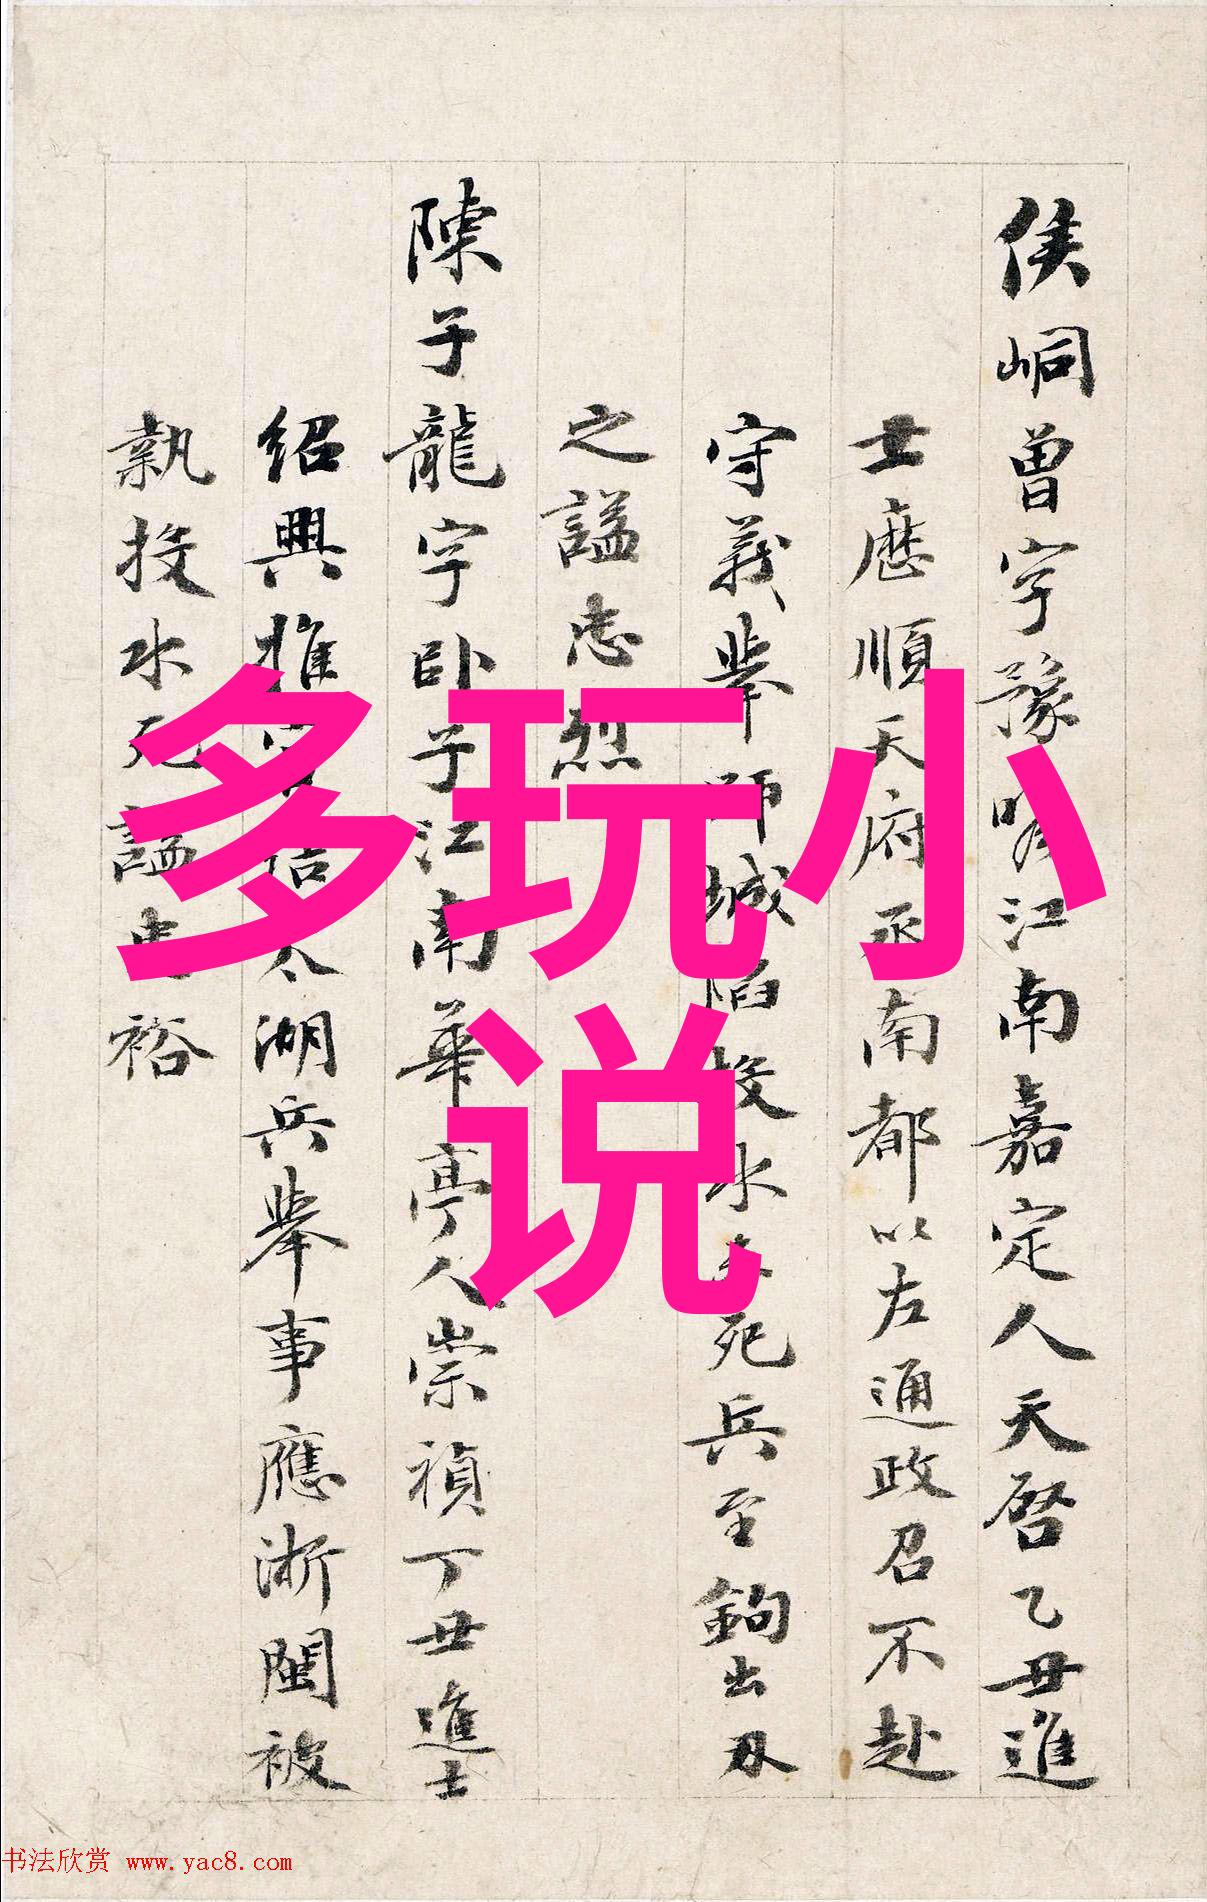 侯峒曾字豫瞻江南嘉定人天啓乙丑進
士歷順天府丞南都以左通政召不赴
守義舉師城陷投水未死兵至鉤出刃
之謚忠烈
陳子龍字卧子江南華亭人崇禎丁丑進士
紹興推官結太湖兵舉事應浙閩被
執投水死謚忠裕
多玩小
说
书法欣赏 www.yac8.com